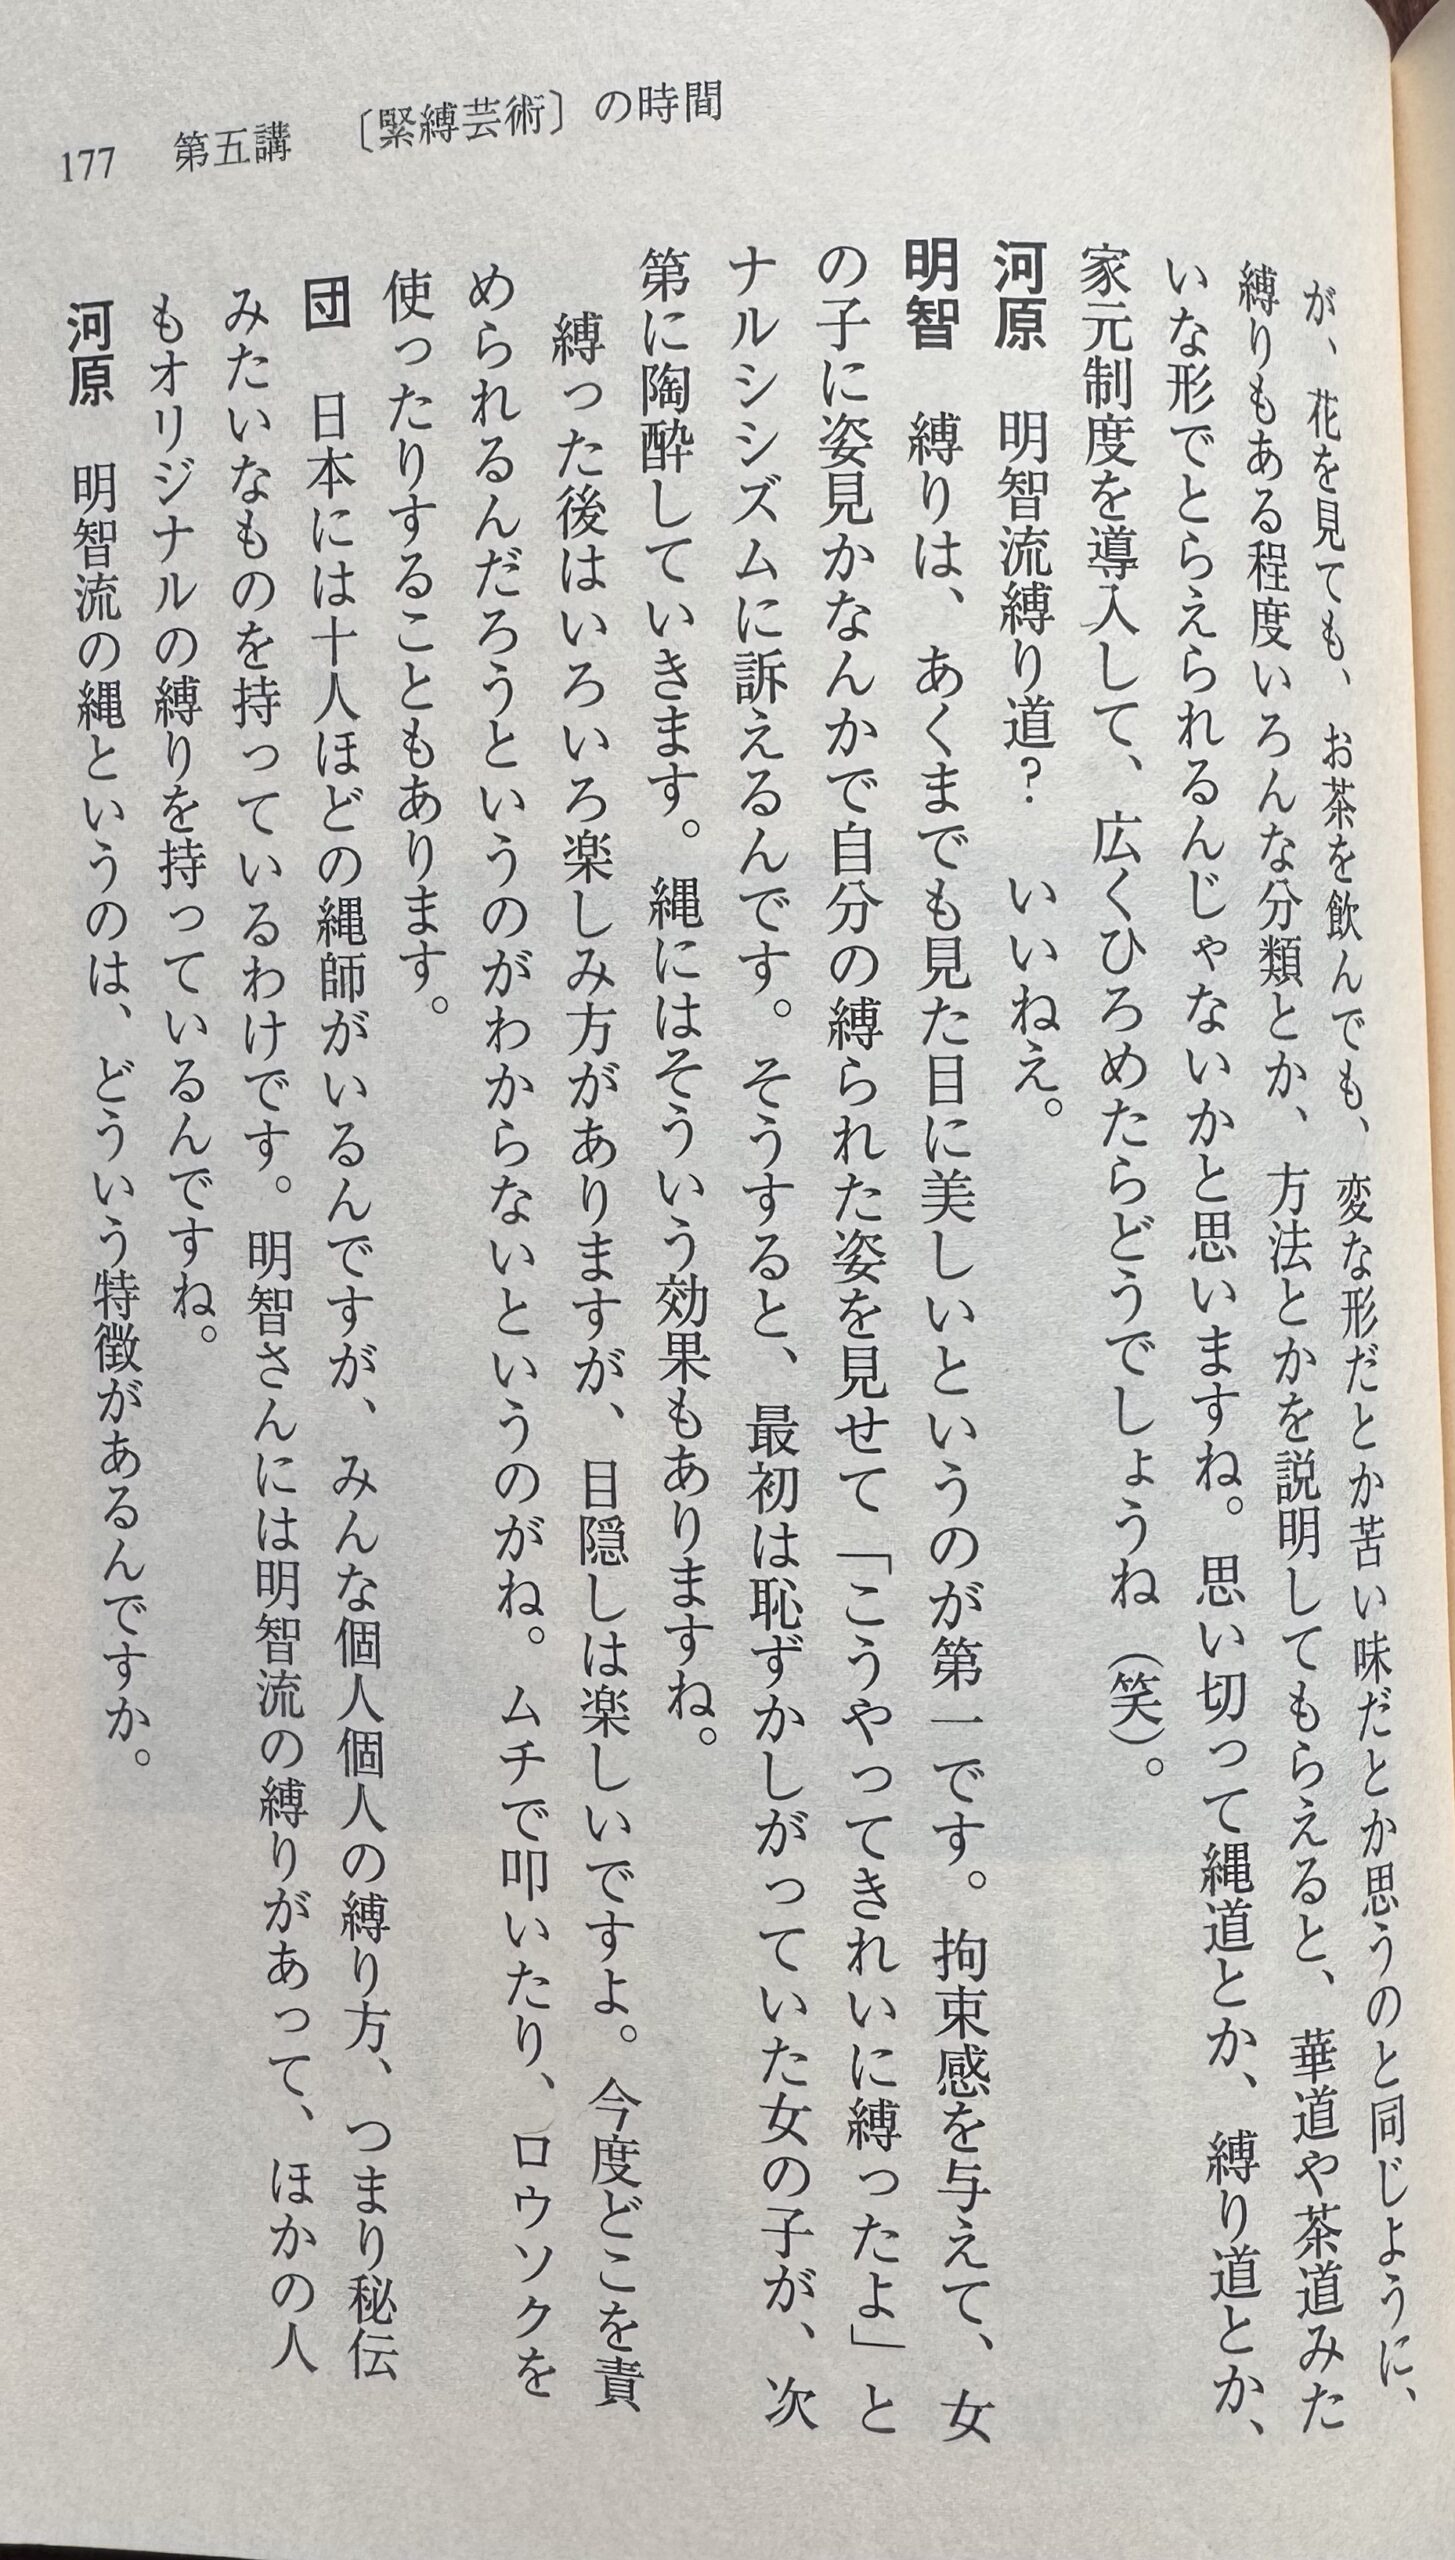 177　第五講　〔緊縛芸術〕の時間
が、花を見ても、お茶を飲んでも、変な形だとか苦い味だとか思うのと同じように、
縛りもある程度いろんな分類とか、方法とかを説明してもらえると、華道や茶道みた
いな形でとらえられるんじゃないかと思いますね。思い切って縄道とか、縛り道とか、
家元制度を導入して、広くひろめたらどうでしょうね（笑）。
河原　明智流縛り道？　いいねえ。
明智　縛りは、あくまでも見た目に美しいというのが第一です。拘束感を与えて、女
の子に姿見かなんかで自分の縛られた姿を見せて「こうやってきれいに縛ったよ」と
ナルシシズムに訴えるんです。そうすると、最初は恥ずかしがっていた女の子が、次
第に陶酔していきます。縄にはそういう効果もありますね。
　縛った後はいろいろ楽しみ方がありますが、目隠しは楽しいですよ。今度どこを責
められるんだろうというのがわからないというのがね。ムチで叩いたり、ロウソクを
使ったりすることもあります。
団　日本には十人ほどの縄師がいるんですが、みんな個人個人の縛り方、つまり秘伝
みたいなものを持っているわけです。明智さんには明智流の縛りがあって、ほかの人
もオリジナルの縛りを持っているんですね。
河原　明智流の縄というのは、どういう特徴があるんですか。